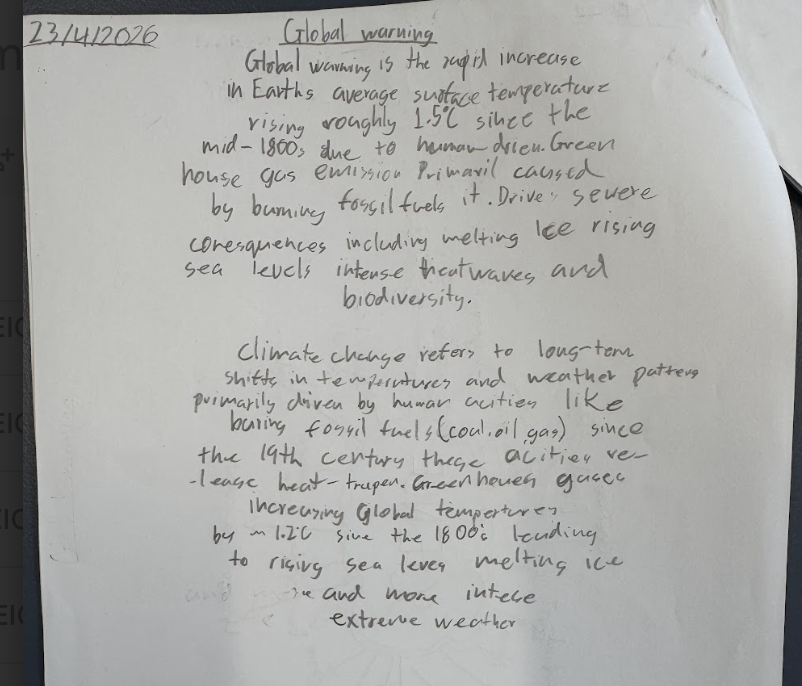 23/4/2026
Global warning
Global warning is the rapid increase
in Earths average surface temperature
rising roughly 1.5°C since the
mid-1800s due to human drien. Green
house gas emission Primaril caused
by burning fossil fuels it. Drive severe
coresquences including melting Ice rising
sea levels intense heatwaves and
biodiversity.
Climate change refers to long-term
shifts in temperatures and weather patterns
primarily driven by human acities like
buring fossil fuels (coal.oil gas) since
the 19th century these acities re-
-lease heat-trapen. Greenhoues gases
increasing Global tempertures
by ~ 1.2°C sine the 1800s leading
to rising sea leves melting ice
and more intese
extreme weather